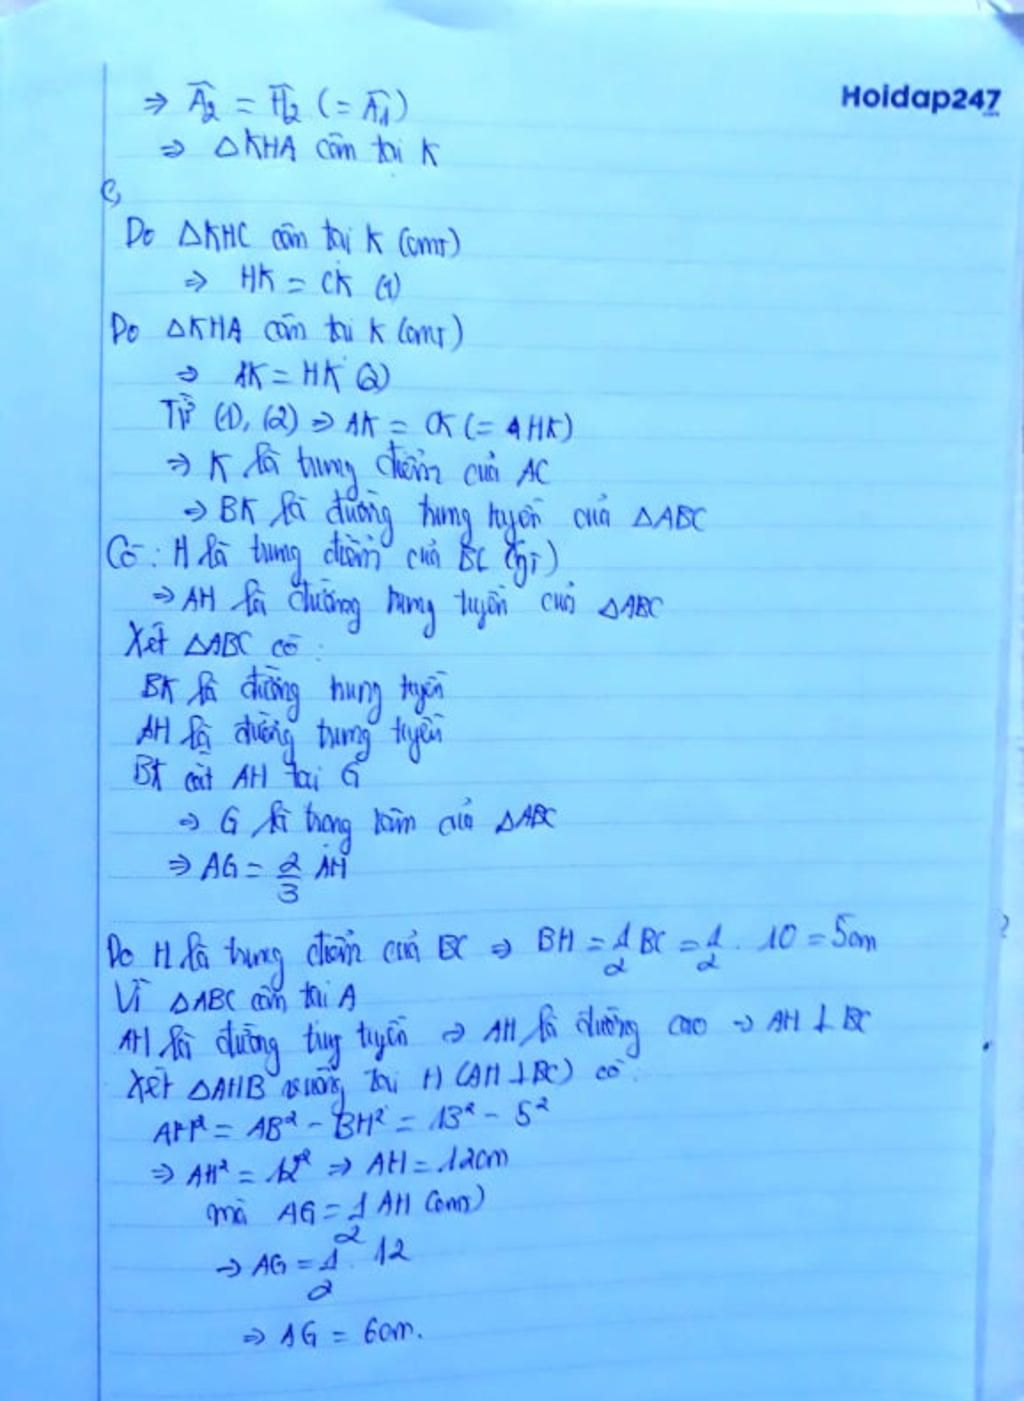 Hoidap247
⇒ Â₂ = Ĥ₂ (= Â₁)
⇒ ΔKHA cân tại K
c,
Do ΔKHC cân tại K (cmt)
⇒ HK = CK (1)
Do ΔKHA cân tại K (cmt)
⇒ AK = HK (2)
Từ (1), (2) ⇒ AK = CK (= HK)
⇒ K là trung điểm của AC
⇒ BK là đường trung tuyến của ΔABC
Có: H là trung điểm của BC (gt)
⇒ AH là đường trung tuyến của ΔABC
Xét ΔABC có:
BK là đường trung tuyến
AH là đường trung tuyến
BK cắt AH tại G
⇒ G là trọng tâm của ΔABC
⇒ AG = 2/3 AH
Do H là trung điểm của BC ⇒ BH = 1/2 BC = 1/2 . 10 = 5cm
Vì ΔABC cân tại A
AH là đường tuyến ⇒ AH là đường cao ⇒ AH ⊥ BC
Xét ΔAHB vuông tại H (AH ⊥ BC) có:
AH² = AB² - BH² = 13² - 5²
⇒ AH² = 12² ⇒ AH = 12cm
mà AG = 1/2 AH (cmt)
⇒ AG = 1/2 . 12
⇒ AG = 6cm.